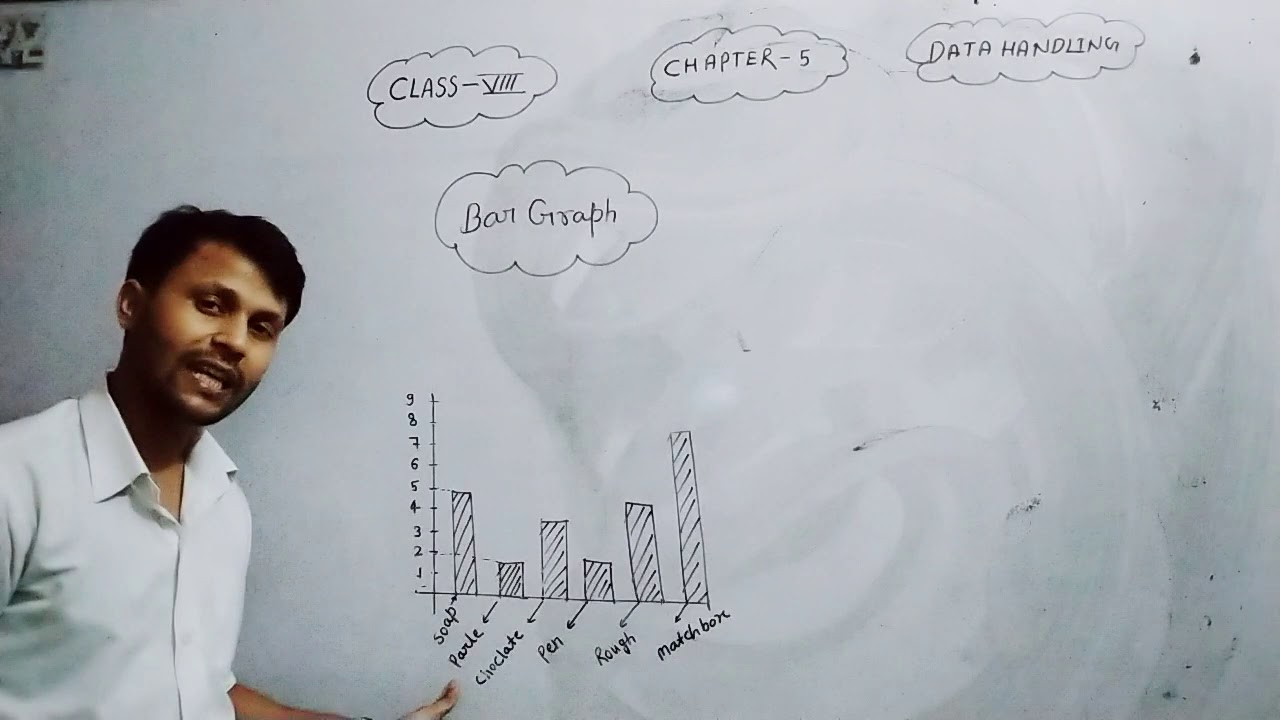 CLASS-VIII
CHAPTER-5
DATA HANDLING
Bar Graph
9
8
7
6
5
4
3
2
1
Soap
Parle
Choclate
Pen
Rough
Matchbox